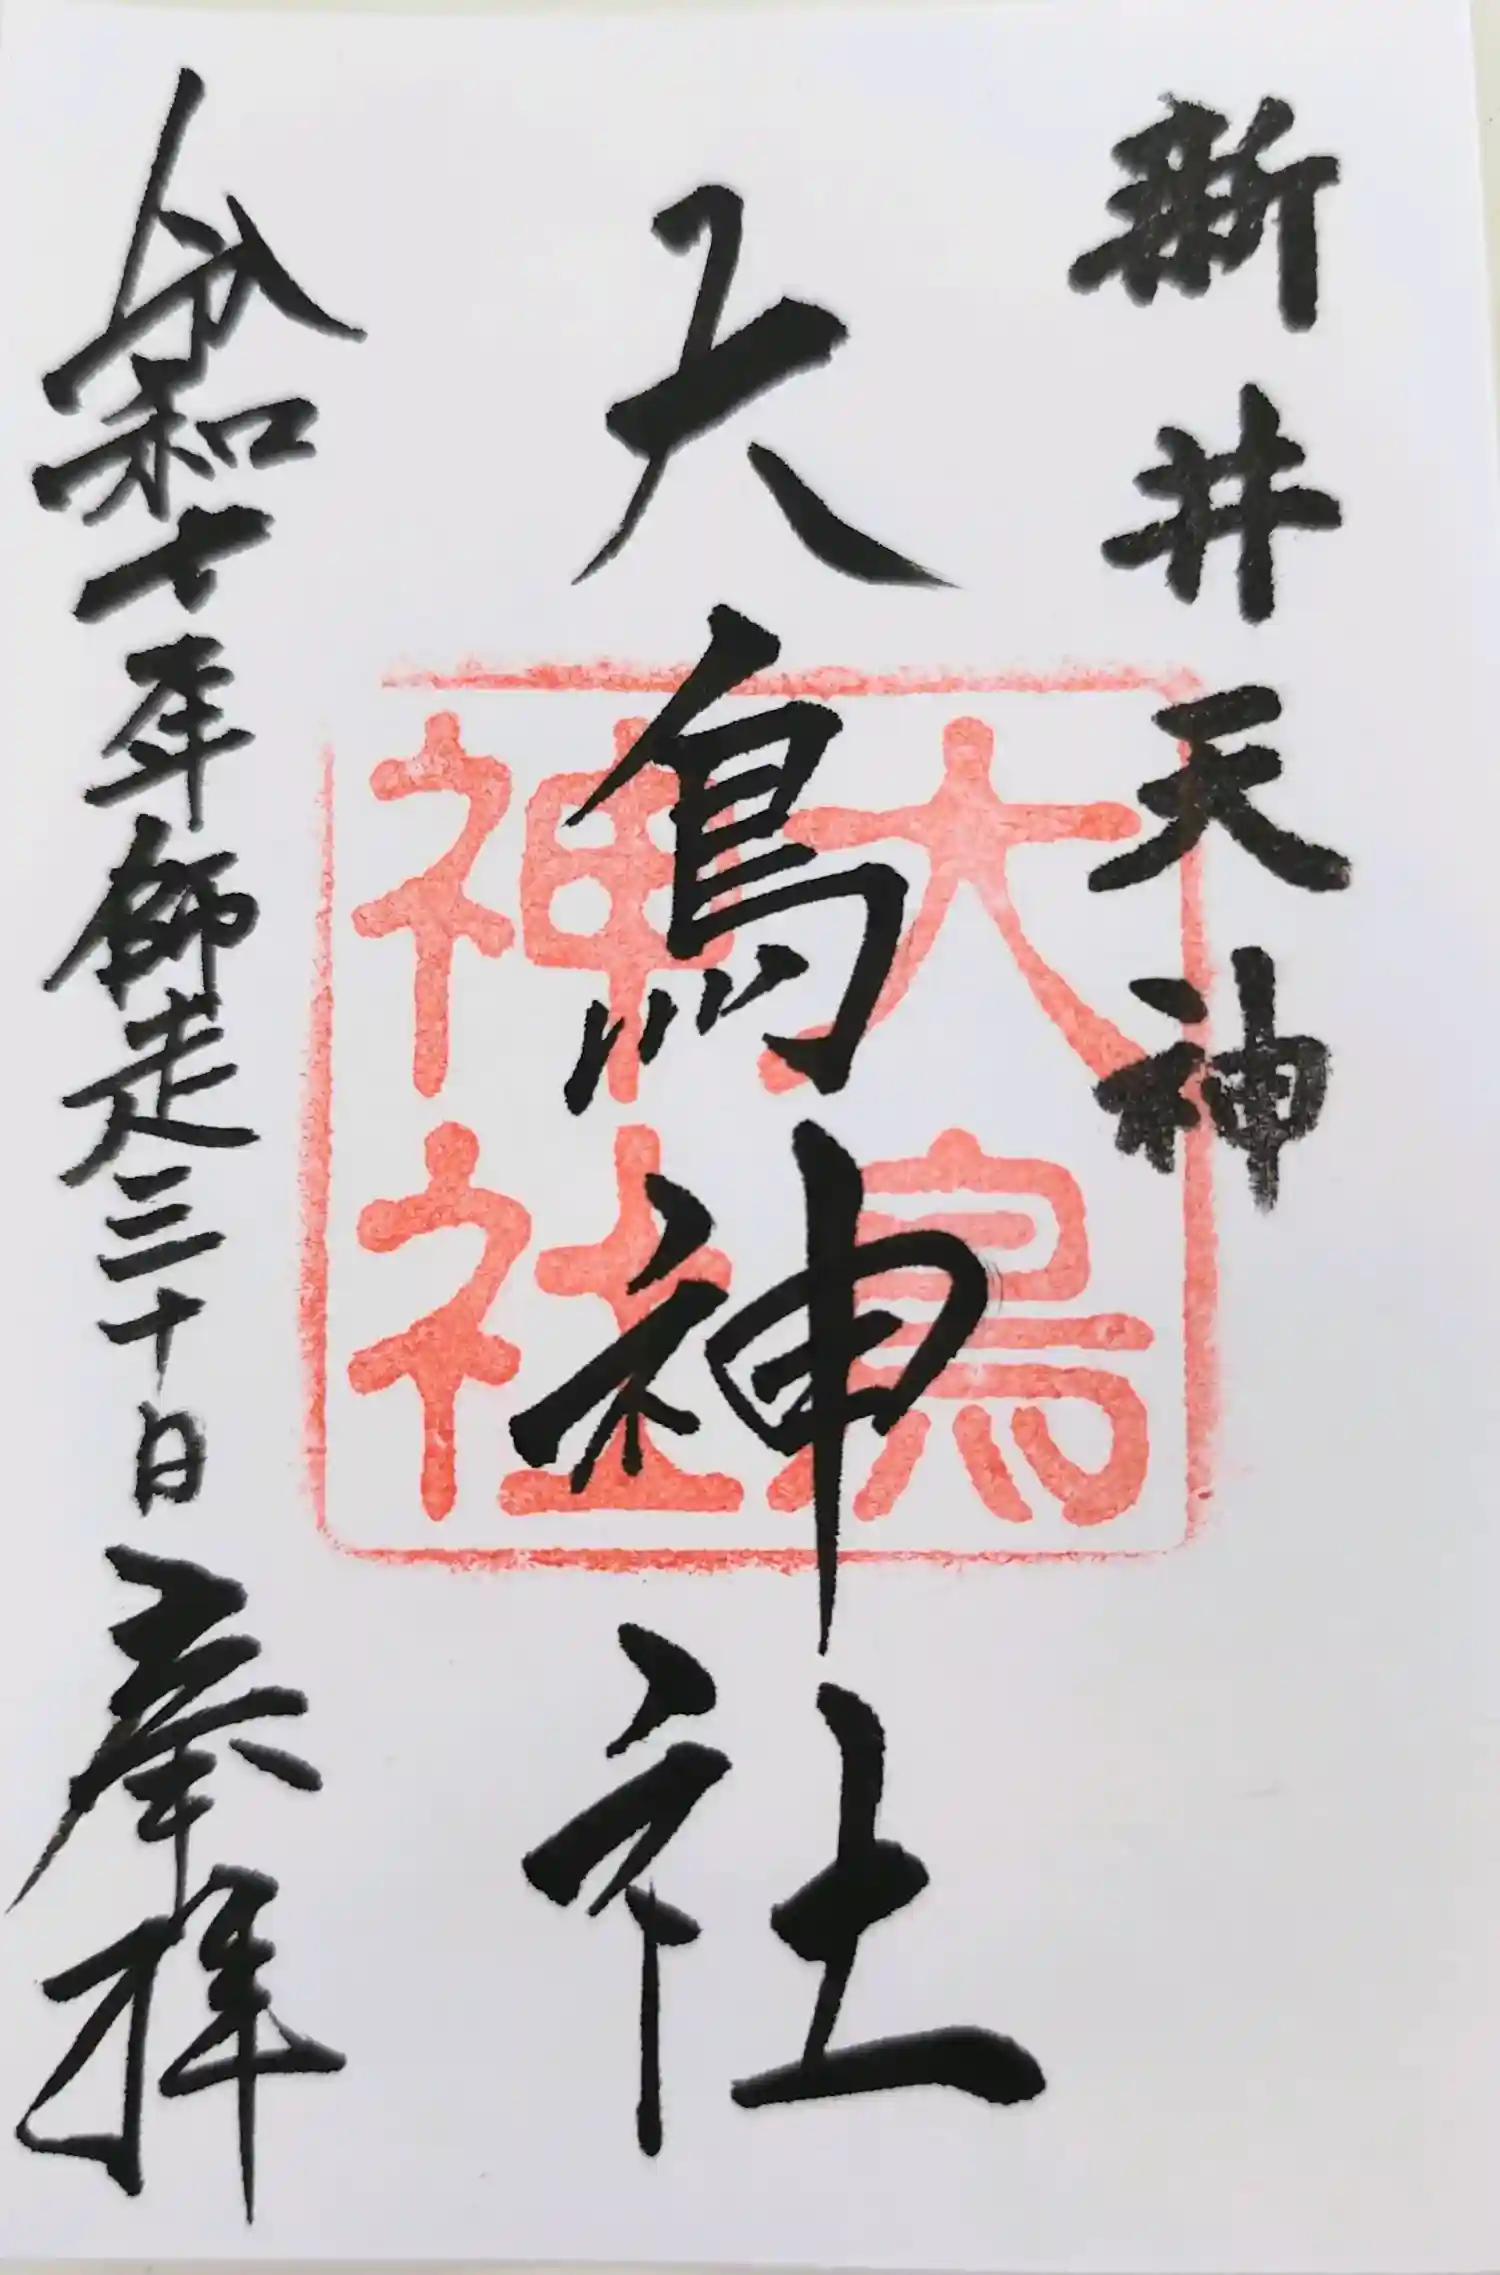 新井天神
大鳥神社
大鳥
神社
令和七年師走三十日 奉拝